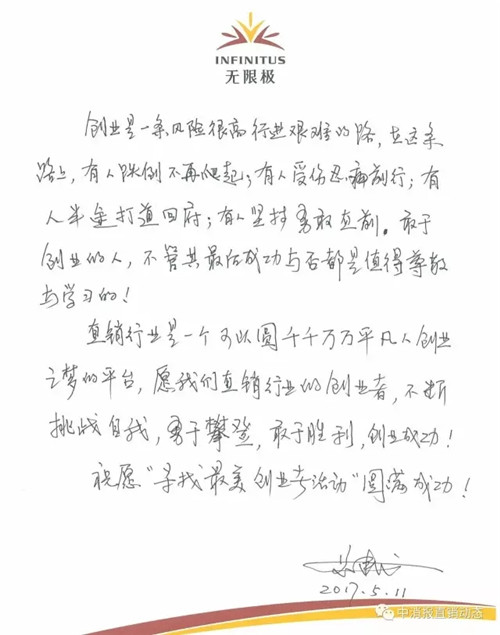 INFINITUS
无限极
创业是一条风险很高行进艰难的路，在这条
路上，有人跌倒不再爬起；有人受伤忍痛前行；有
人半途打道回府；有人坚持勇敢直前。敢于
创业的人，不管其最后成功与否都是值得尊敬
与学习的！
直销行业是一个可以圆千千万万平凡人创业
之梦的平台，愿我们直销行业的创业者，不断
挑战自我，勇于攀登，敢于胜利，创业成功！
祝愿“寻找最美创业者活动”圆满成功！
2017.5.11
中消报直销动态